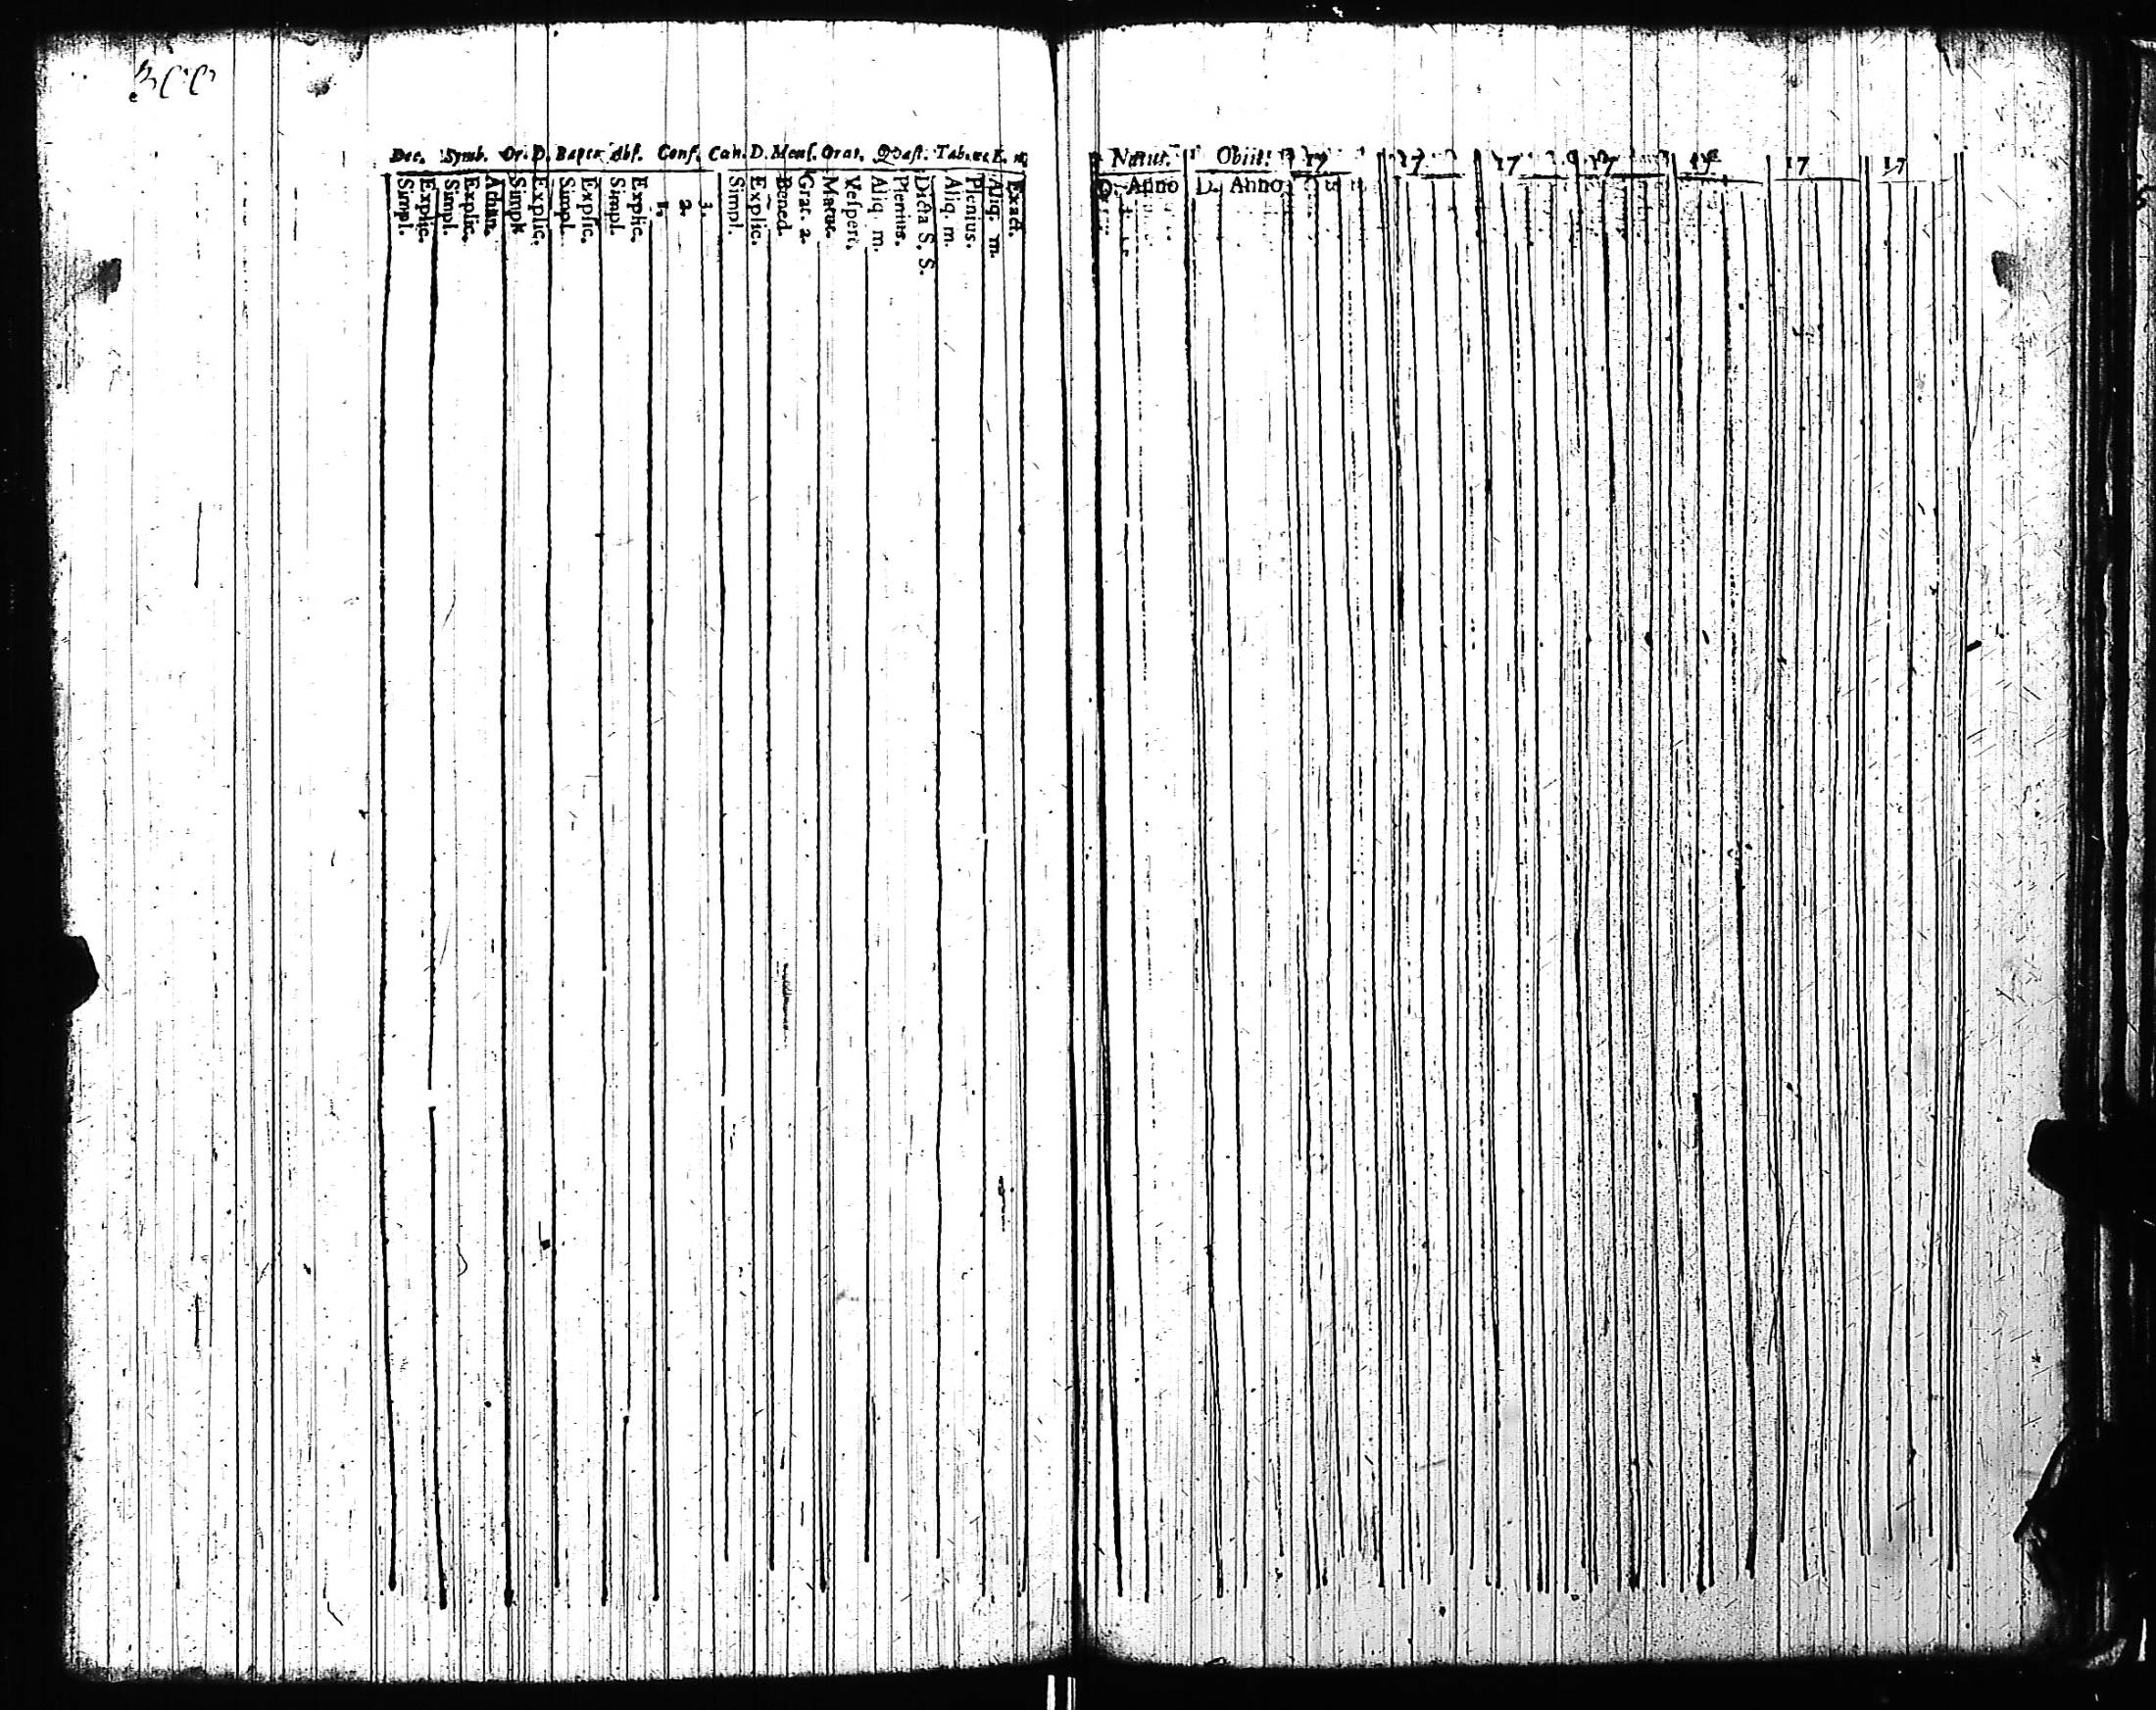 Dec. Symb. Or. D. Bapt. Abs. Conf. Cœn. D. Mens. Orat. Quæst. Tab. œc. E. m.
Simpl.
Explic.
Simpl.
Explic.
Athan.
Simpl.
Explic.
Simpl.
Explic.
Simpl.
Explic.
1.
2.
3.
Simpl.
Explic.
Bened.
Grat. 2.
Matut.
Vespert.
Aliq. m.
Plenius.
Dicta S. S.
Aliq. m.
Plenius.
Aliq. m.
Exact.
Natus. Obiit. 17 17 17 17 17 17 17
D. Anno D. Anno